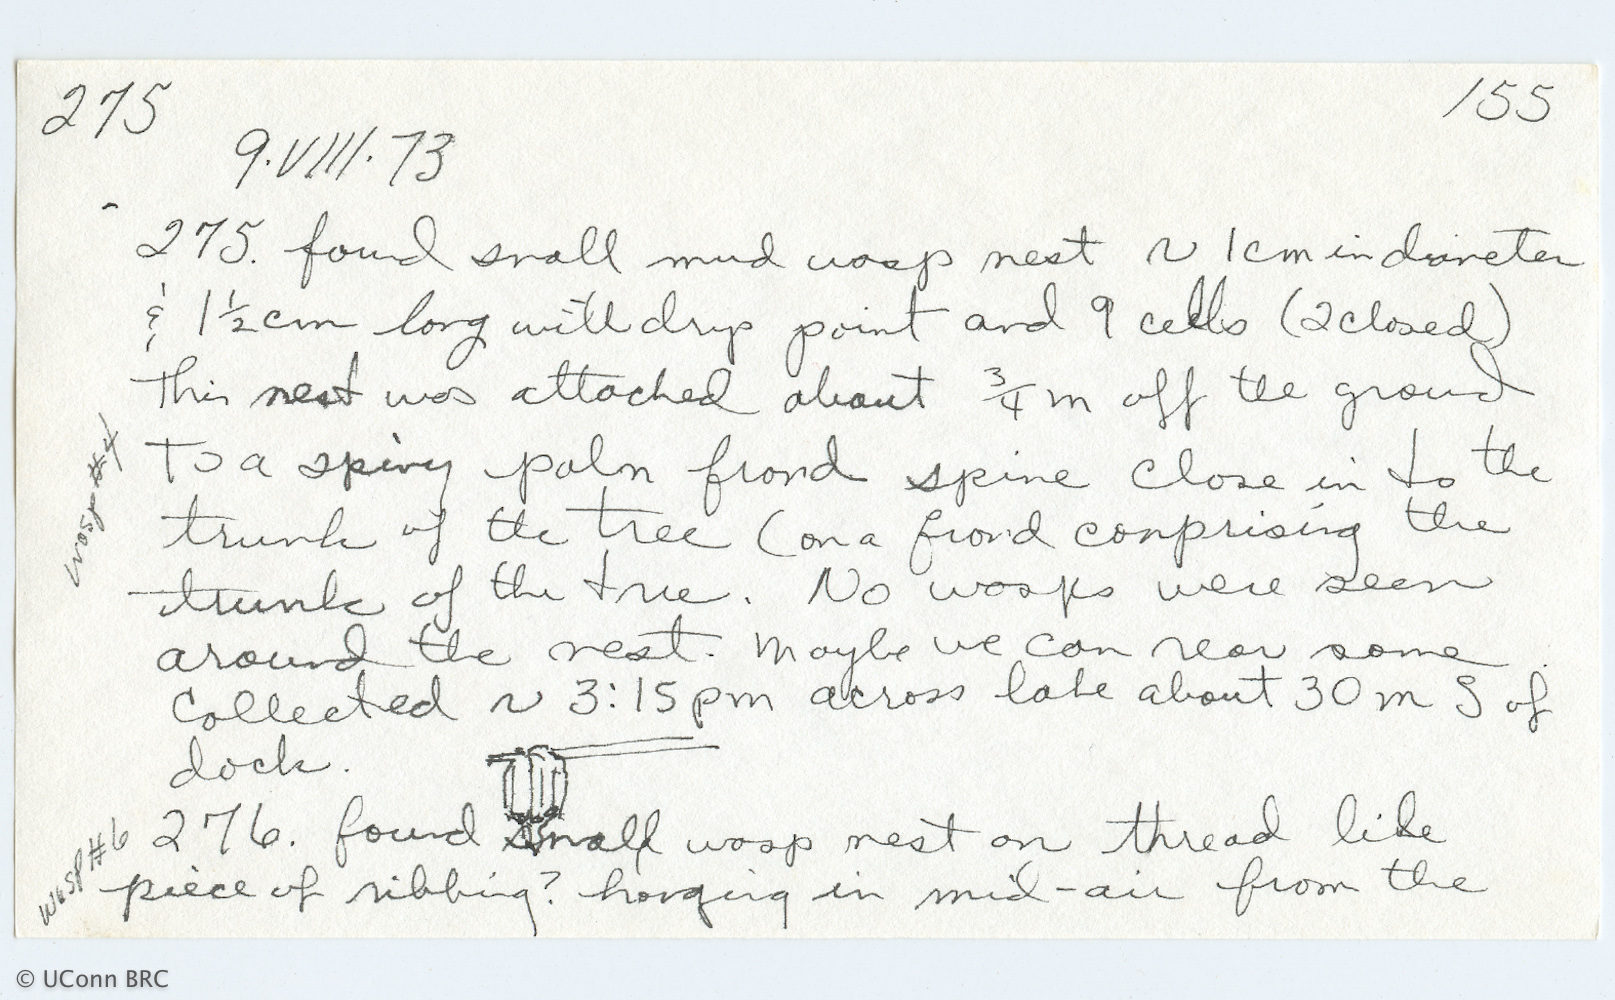 275
155
9.VIII.73
275. found small mud wasp nest ~ 1cm in diameter
& 1 1/2 cm long with drip point and 9 cells (2 closed)
This nest was attached about 3/4 m off the ground
To a spiny palm frond spine close in to the
trunk of the tree (on a frond comprising the
trunk of the tree. No wasps were seen
around the nest. Maybe we can rear some
collected ~ 3:15 pm across lake about 30 m S of
dock.
276. found small wasp nest on thread like
piece of ribbing? hanging in mid-air from the
wasp #7
wasp #6
© UConn BRC